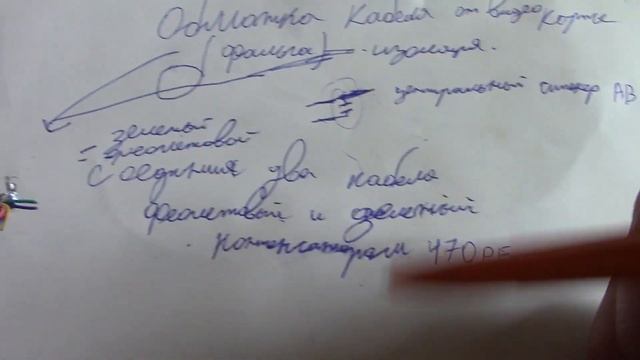 Обмотка кабеля от видео карты
(фольга) - изоляция.
центральный штекер АВ
зеленый
= фиолетовый
Соединил два кабеля
фиолетовый и зеленый
конденсатором 470